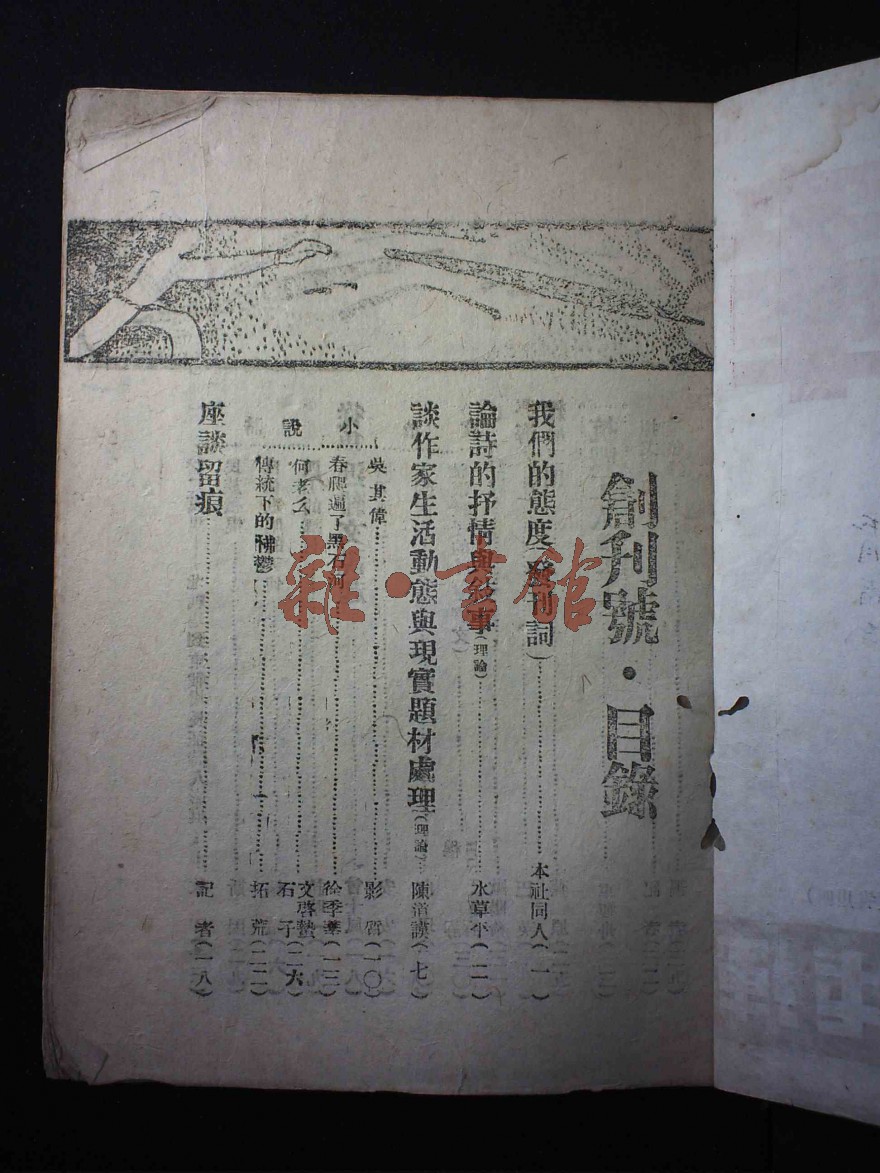 創刊號·目錄
我們的態度(發刊詞)……本社同人(一)
論詩的抒情與敘事(理論)……水草平(二)
談作家生活動態與現實題材處理(理論)……陳道謨(七)
小說
吳其偉……影質(一〇)
春爬過了黑石河……徐季華(一三)
文啓蟄
何老么……石子(二六)
傳統下的怫鬱……拓荒(二二)
座談留痕……記者(一八)
雜·書館